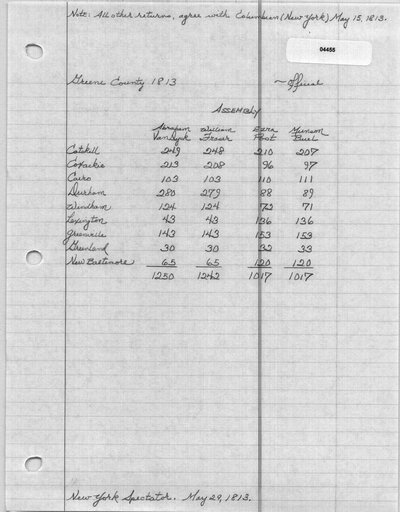 Note: All other returns, agree with Columbian (New York) May 15, 1813.
04455
Greene County 1813 ~ Official
Assembly
Abraham William Ezra Munson
Van Dyck Fraser Post Buel
Catskill 249 248 210 207
Coxackie 213 208 96 97
Cairo 103 103 110 111
Durham 280 279 88 89
Windham 124 124 72 71
Lexington 43 43 136 136
Greenville 143 143 153 153
Greenland 30 30 32 33
New Baltimore 65 65 120 120
1250 1242 1017 1017
New York Spectator. May 29, 1813.